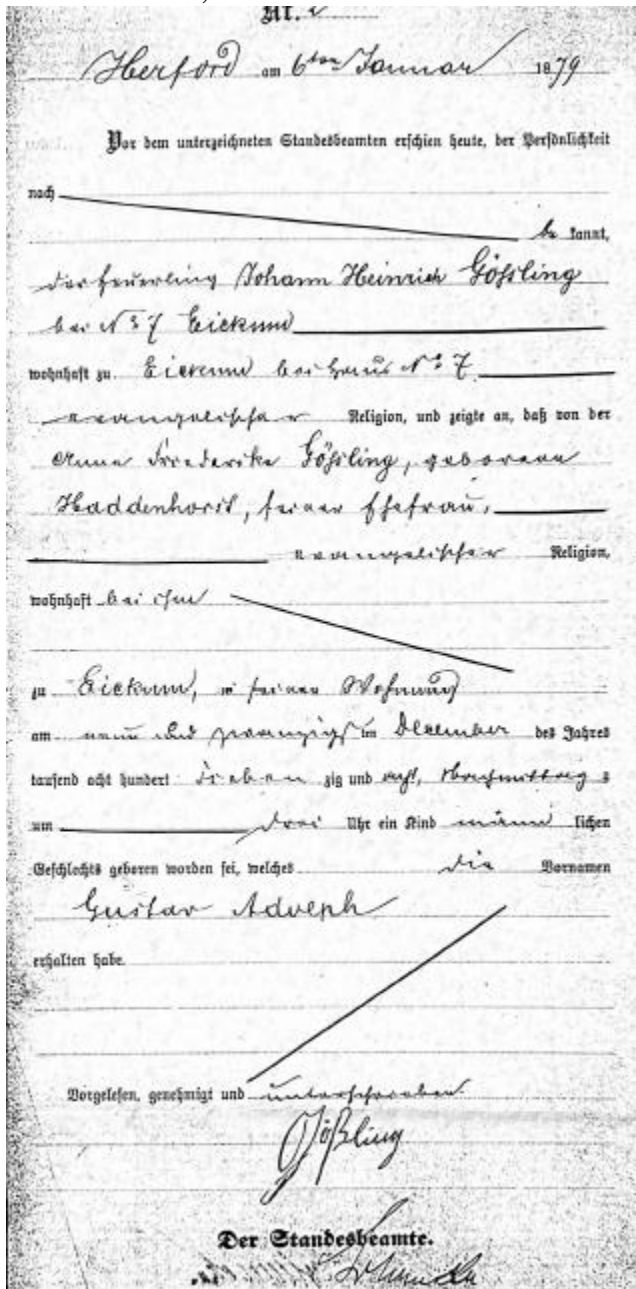 Nr. 2
Herford am 6ten Januar 1879
Vor dem unterzeichneten Standesbeamten erschien heute, der Persönlichkeit
nach
be kannt,
der Heuerling Johann Heinrich Gößling
bei No 7 Eickum
wohnhaft zu Eickum bei Haus No 7
evangelischer Religion, und zeigte an, daß von der
Anne Friederike Gößling, geborene
Haddenhorst, seiner Ehefrau,
evangelischer Religion,
wohnhaft bei ihm
zu Eickum, in seiner Wohnung
am neun und zwanzigsten December des Jahres
tausend acht hundert sieben zig und acht, Nachmittag s
um drei Uhr ein Kind männ lichen
Geschlechts geboren worden sei, welches die Vornamen
Gustav Adolph
erhalten habe.
Vorgelesen, genehmigt und unterschrieben.
Gößling
Der Standesbeamte.